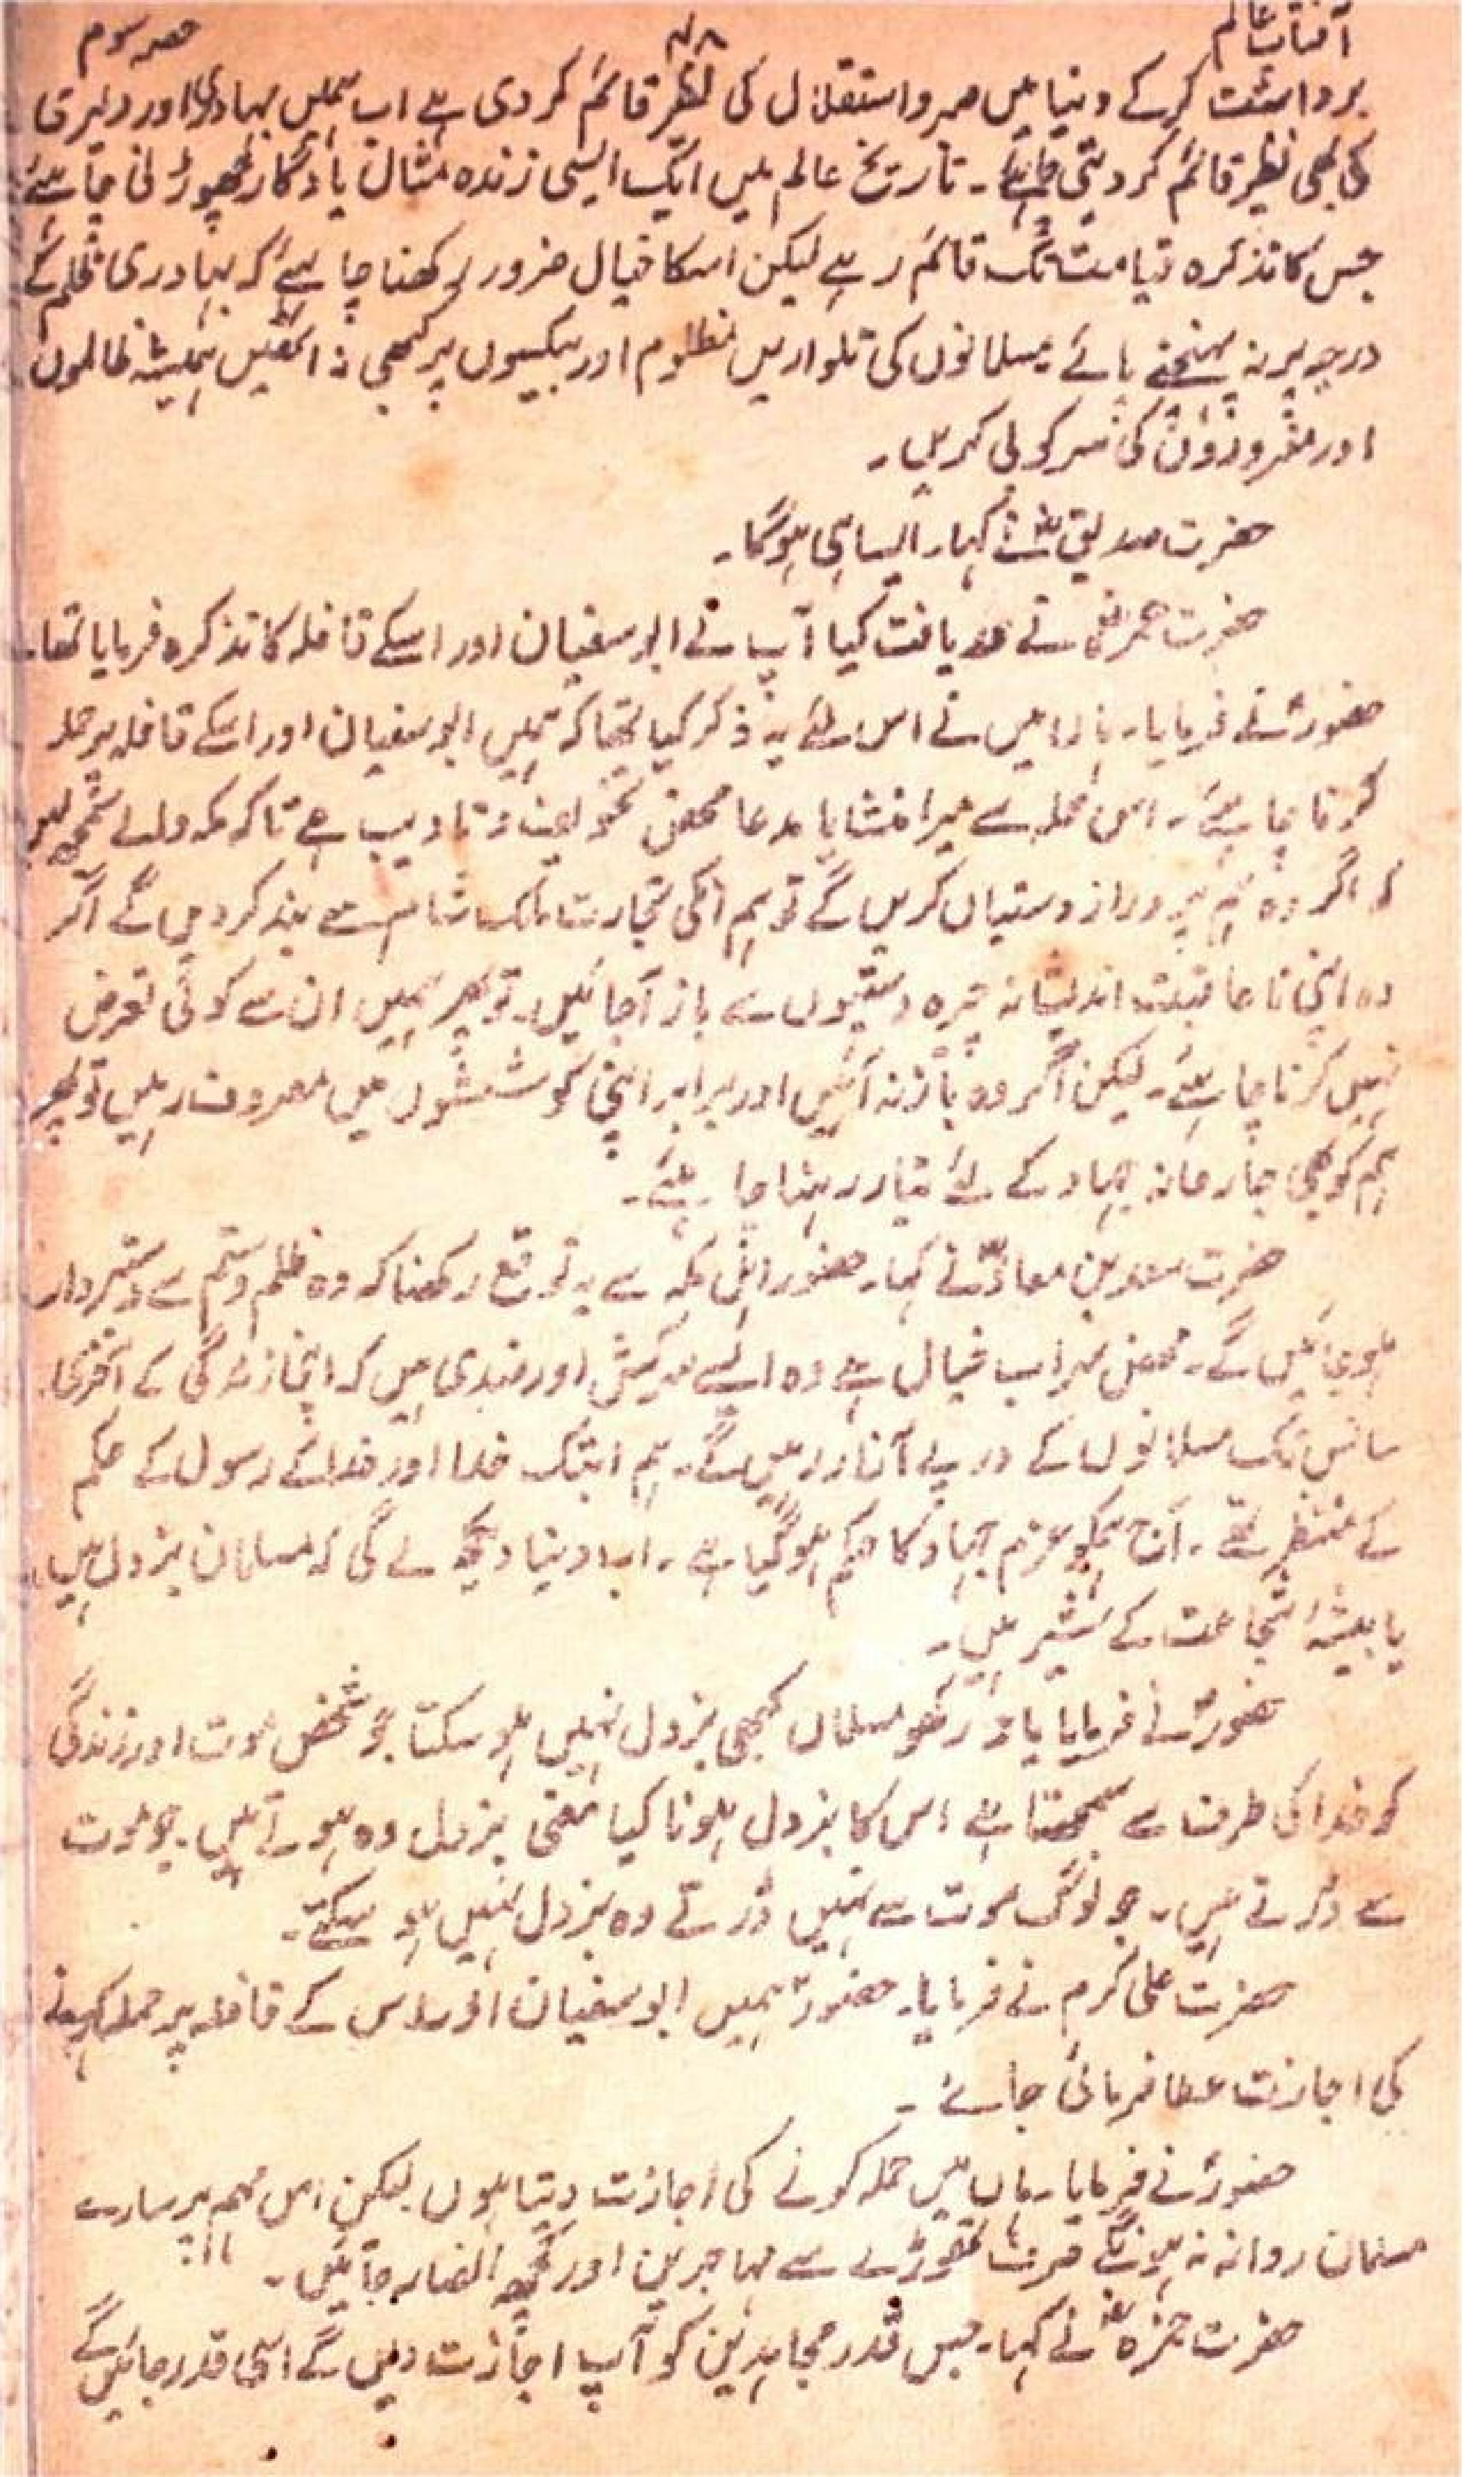 آفتاب عالم ۷۸ حصہ سوم
برداشت کرکے دنیا میں صبر و استقلال کی نظیر قائم کر دی ہے اب ہمیں بہادری اور دلیری
کی بھی نظیر قائم کر دینی چاہئے۔ تاریخ عالم میں ایک ایسی زندہ مثال یادگار چھوڑنی چاہئے
جس کا تذکرہ قیامت تک قائم رہے لیکن اسکا خیال ضرور رکھنا چاہئے کہ بہادری ظلم کے
درجہ پر نہ پہنچنے پائے مسلمانوں کی تلواریں مظلوم اور بیکسوں پر کبھی نہ اٹھیں ہمیشہ ظالموں
اور مغروروں کی سرکوبی کریں۔
حضرت صدیقؓ نے کہا۔ ایسا ہی ہوگا۔
حضرت عمرؓ نے دریافت کیا آپ نے ابوسفیان اور اسکے قافلہ کا تذکرہ فرمایا تھا۔
حضورؐ نے فرمایا۔ ہاں! میں نے اس لئے یہ ذکر کیا تھا کہ ہمیں ابوسفیان اور اسکے قافلہ پر حملہ
کرنا چاہئے۔ اس حملہ سے میرا منشا یا مدعا محض تخویف و تادیب ہے تاکہ مکہ والے سمجھ لیں
کہ اگر وہ ہم پر دراز دستیاں کریں گے تو ہم انکی تجارت ملک شام سے بند کر دیں گے اگر
وہ اپنی ناعاقبت اندیشانہ چیرہ دستیوں سے باز آجائیں۔ تو پھر ہمیں ان سے کوئی تعرض
نہیں کرنا چاہئے۔ لیکن اگر وہ باز نہ آئیں اور برابر اپنی کوششوں میں مصروف رہیں تو پھر
ہم کو بھی جارحانہ جہاد کے لئے تیار رہنا چاہئے۔
حضرت سعد بن معاذؓ نے کہا۔ حضور اہل مکہ سے یہ توقع رکھنا کہ وہ ظلم و ستم سے دستبردار
ہو جائیں گے۔ محض سراب خیال ہے وہ ایسے سرکش اور ضدی ہیں کہ اپنی زندگی کے آخری
سانس تک مسلمانوں کے درپے آزار رہیں گے۔ ہم ابتک خدا اور خدا کے رسول کے حکم
کے منتظر تھے۔ آج ہمکو عزم جہاد کا حکم ہو گیا ہے۔ اب دنیا دیکھ لے گی کہ مسلمان بزدل ہیں
یا بیشۂ شجاعت کے شیر ہیں۔
حضورؐ نے فرمایا یاد رکھو مسلمان کبھی بزدل نہیں ہو سکتا جو شخص موت اور زندگی
کو خدا کی طرف سے سمجھتا ہے اس کا بزدل ہونا کیا معنی بزدل وہ ہوتے ہیں۔ جو موت
سے ڈرتے ہیں۔ جو لوگ موت سے نہیں ڈرتے وہ بزدل نہیں ہو سکتے۔
حضرت علی کرم نے فرمایا۔ حضورؐ ہمیں ابوسفیان اور اس کے قافلہ پر حملہ کرنے
کی اجازت عطا فرمائی جائے۔
حضورؐ نے فرمایا۔ ہاں میں حملہ کرنے کی اجازت دیتا ہوں لیکن اس مہم پر سارے
مسلمان روانہ نہ ہونگے صرف تھوڑے سے مہاجرین اور کچھ انصار جائیں۔
حضرت حمزہؓ نے کہا۔ جس قدر مجاہدین کو آپ اجازت دیں گے اسی قدر جائیں گے